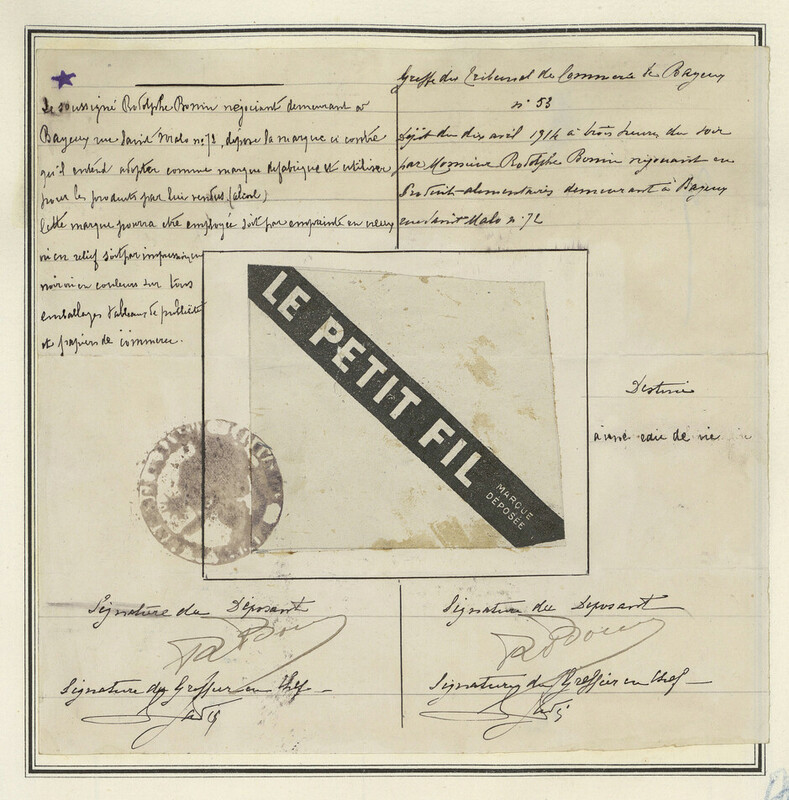 Le soussigné Rodolphe Bonin négociant demeurant à
Bayeux rue Saint Malo no 72, dépose la marque ci contre
qu'il entend adopter comme marque de fabrique et utiliser
pour les produits par lui vendus (alcool)
Cette marque pourra être employée soit par empreinte en creux
ou en relief soit par impression
noir ou en couleurs sur tous
emballages tableaux de publicité
et papiers de commerce.
Greffe du Tribunal de Commerce de Bayeux
n° 53
Dépôt du dix avril 1914 à trois heures du soir
par Monsieur Rodolphe Bonin négociant en
Produits alimentaires demeurant à Bayeux
rue Saint-Malo n° 72
LE PETIT FIL
MARQUE
DÉPOSÉE
Destinée
à une eau de vie
Signature du Déposant
Signature du Greffier en Chef
Signature du Déposant
Signature du Greffier en Chef